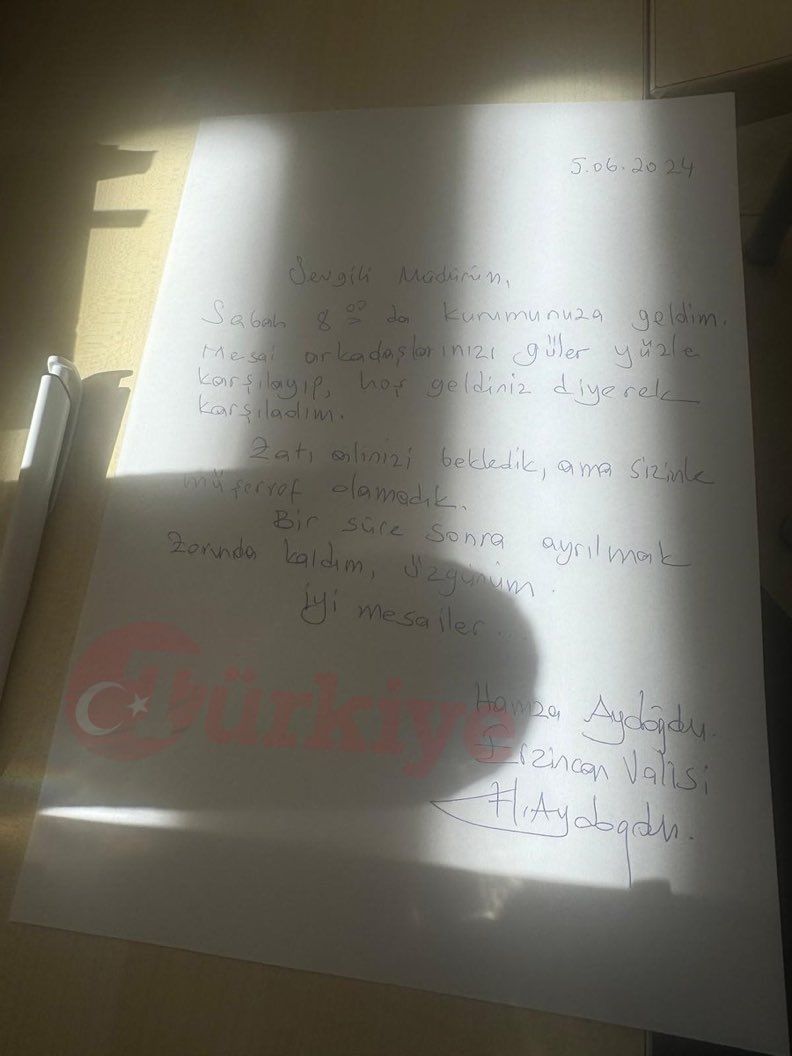 5.06.2024
Sevgili Müdürüm,
Sabah 8⁰⁰ da kurumunuza geldim.
Mesai arkadaşlarınızı güler yüzle
karşılayıp, hoş geldiniz diyerek
karşıladım.
Zatı alinizi bekledik, ama sizinle
müşerref olamadık.
Bir süre sonra ayrılmak
zorunda kaldım, üzgünüm.
İyi mesailer...
Hamza Aydoğdu.
Erzincan Valisi
H.Aydoğdu.
Türkiye